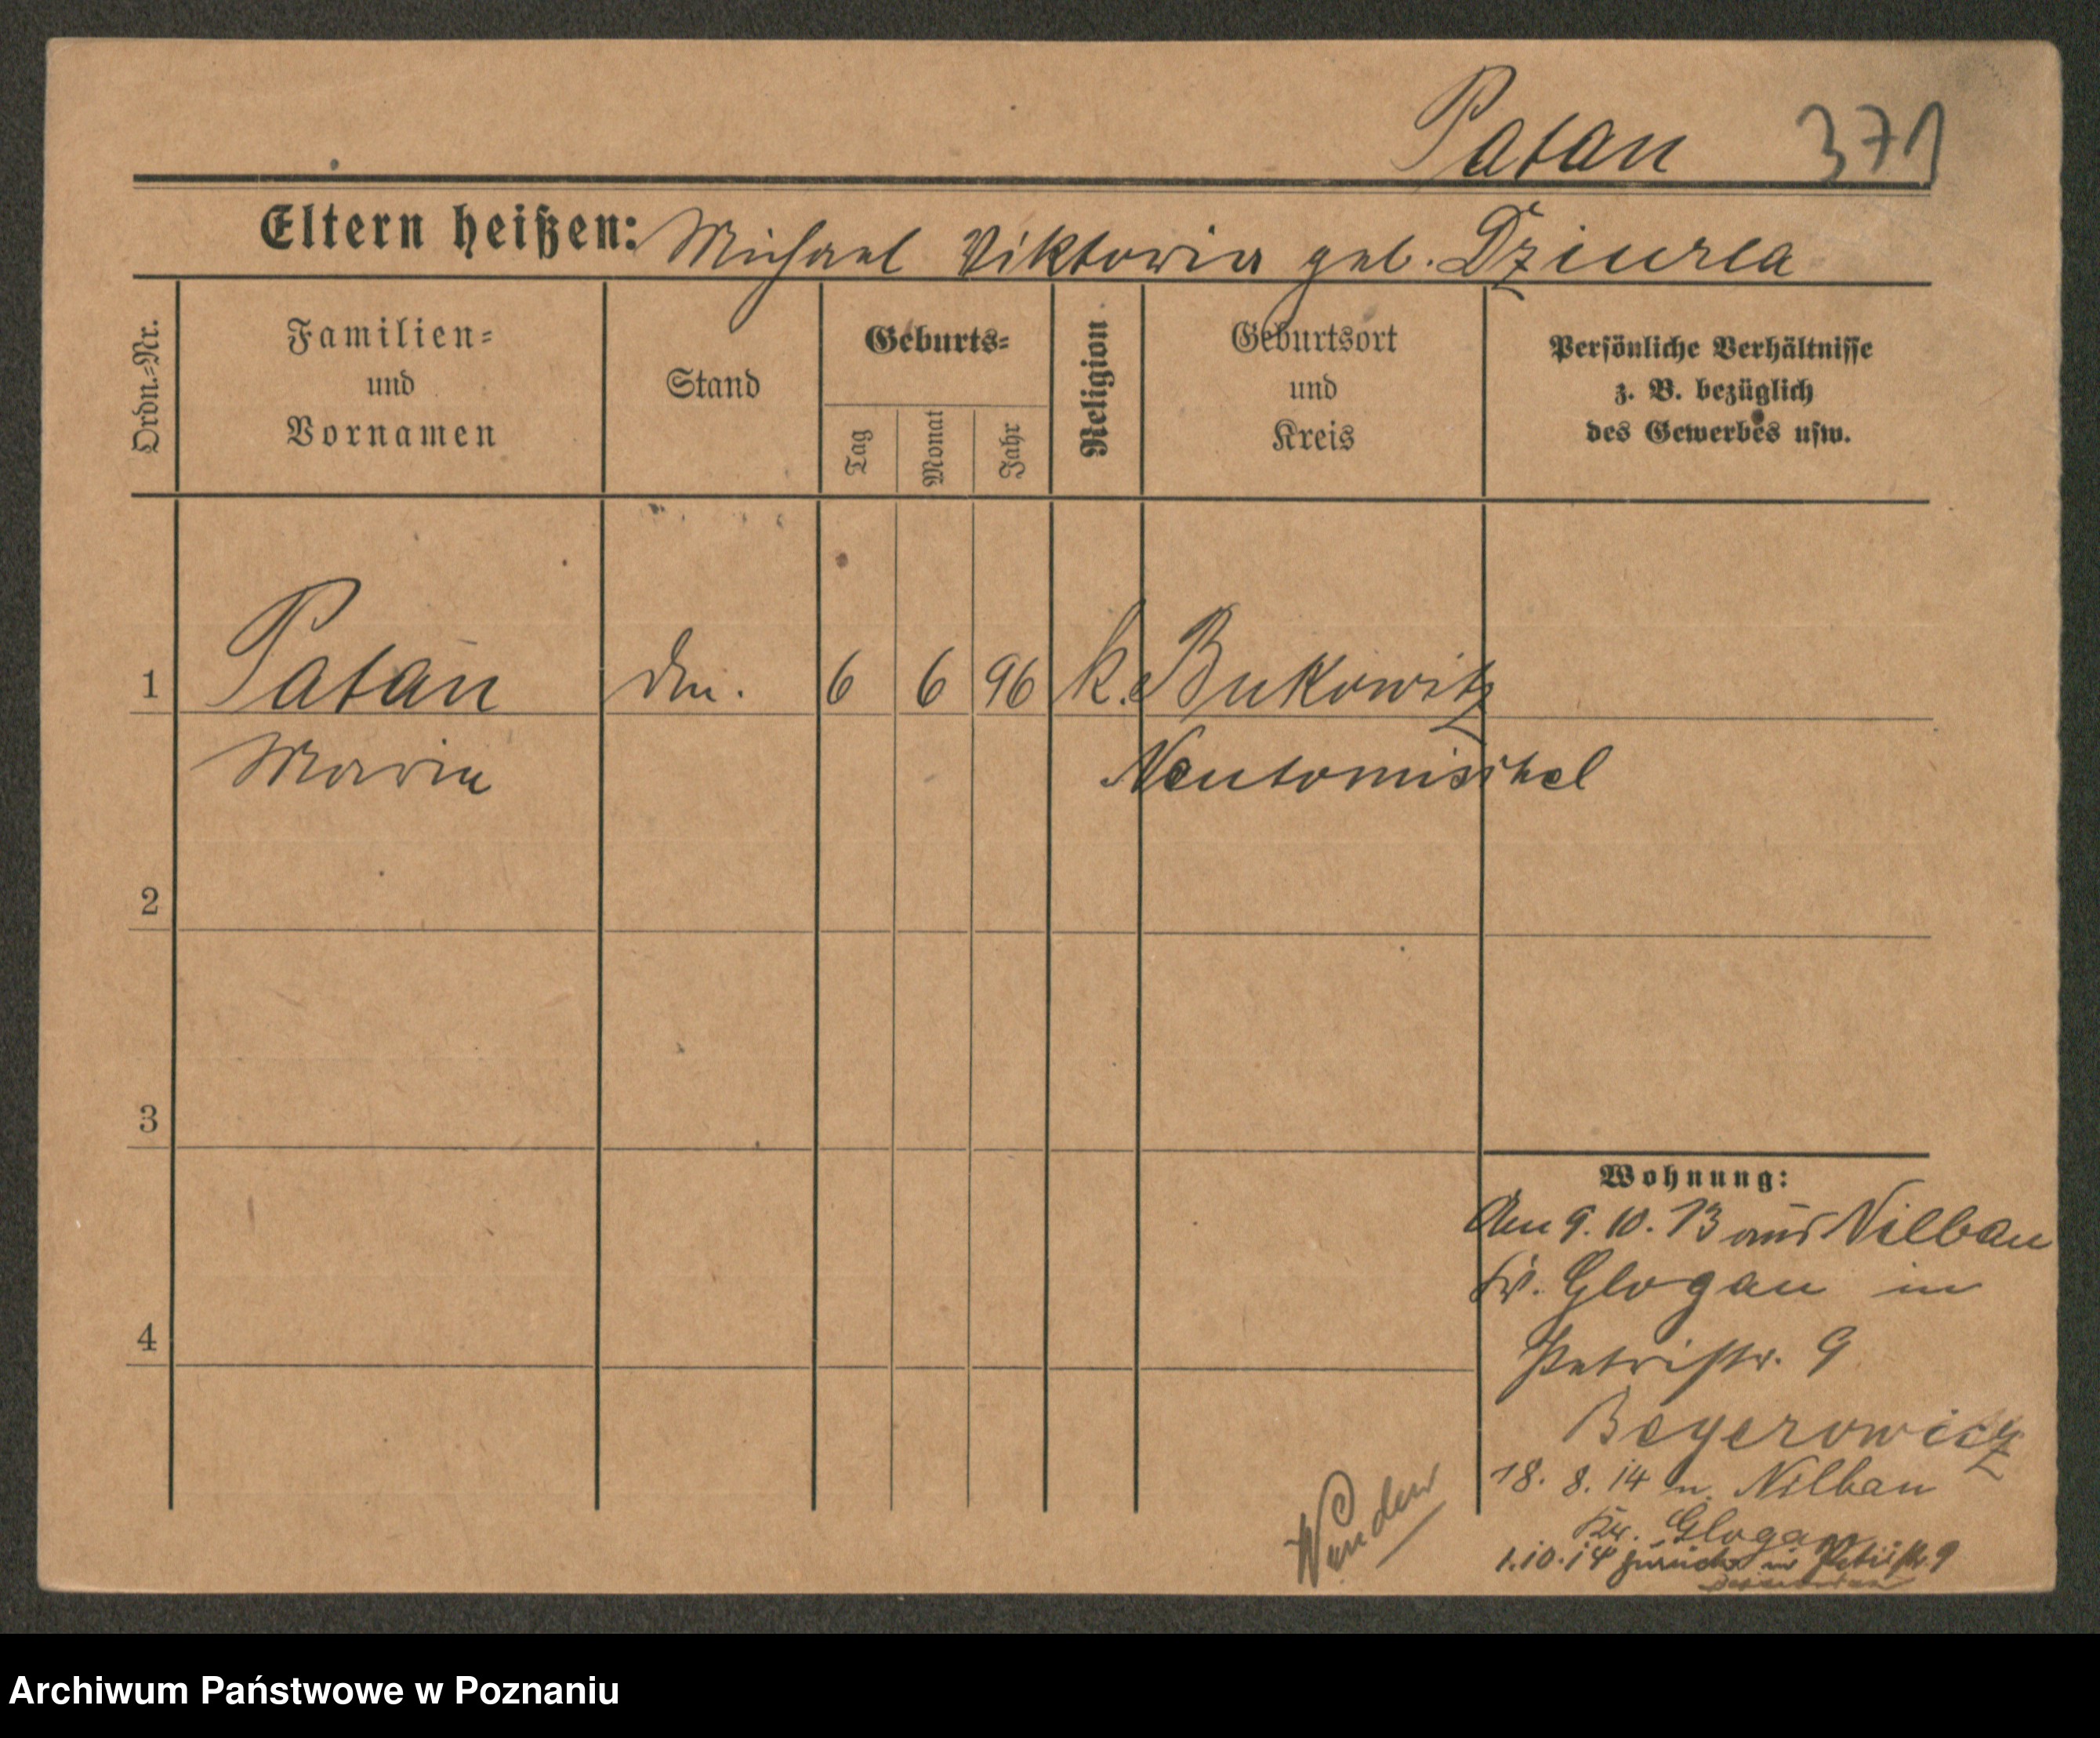 Patan 371
Eltern heißen: Michael Viktoria geb. Dziurla
Ordn.-Nr.
Familien-
und
Vornamen
Stand
Geburts-
Tag
Monat
Jahr
Religion
Geburtsort
und
Kreis
Persönliche Verhältnisse
z. B. bezüglich
des Gewerbes usw.
1 Patan Dm. 6 6 96 k. Bukowitz
Maria Neutomischel
2
3
4
Wohnung:
Am 9.10.13 aus Nilbau
Kr. Glogau in
Petristr. 9
Beyerowitz
18. 8. 14 n. Nilbau
Kr. Glogau
1.10.14 zurück in Petristr. 9
Wenden
Archiwum Państwowe w Poznaniu